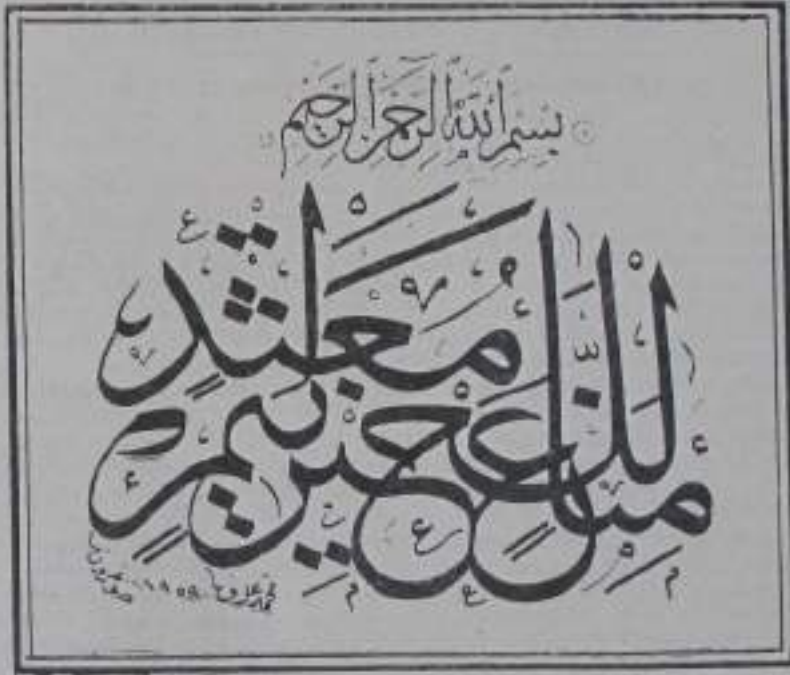 بِسْمِ اللّٰهِ الرَّحْمٰنِ الرَّحِيمِ
مَنَّاعٍ لِلْخَيْرِ مُعْتَدٍ أَثِيمٍ